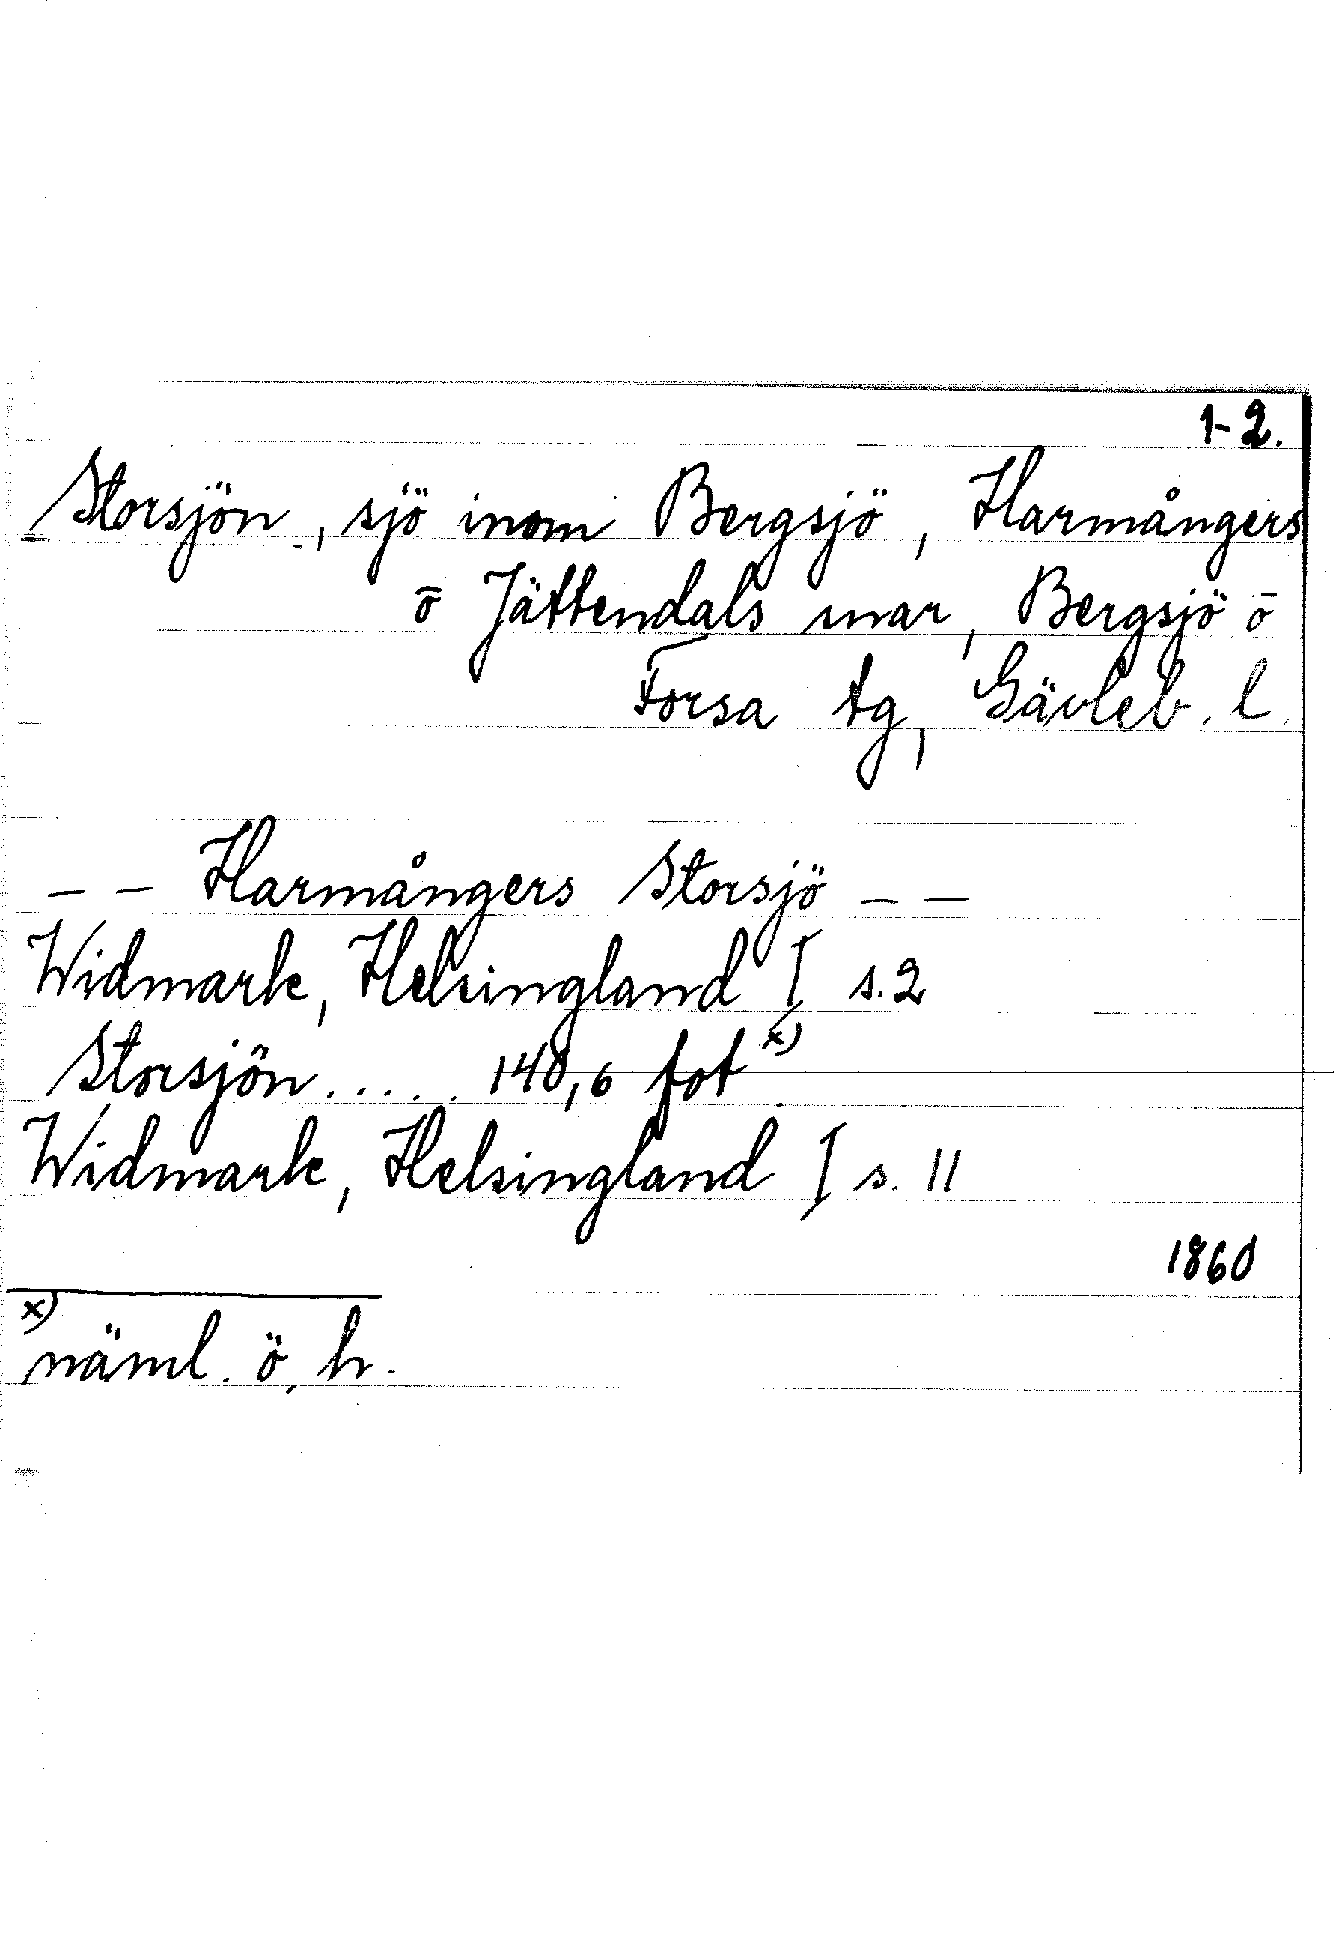 1-2.
Storsjön, sjö inom Bergsjö, Harmångers
ō Jättendals snar, Bergsjö ō
Forsa tg, Gävleb. l.
– – Harmångers Storsjö – –
Widmark, Helsingland I s. 2
Storsjön..... 140,6 fot x)
Widmark, Helsingland I s. 11
1860
x) näml. ö. h.